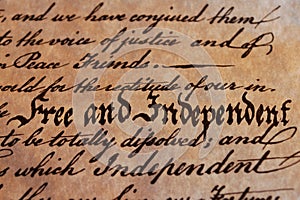 , and we have conjured them
to the voice of justice and of
in Peace Friends. —
world for the rectitude of our in
Free and Independent
to be totally dissolved; and
s which Independent
Fortunes